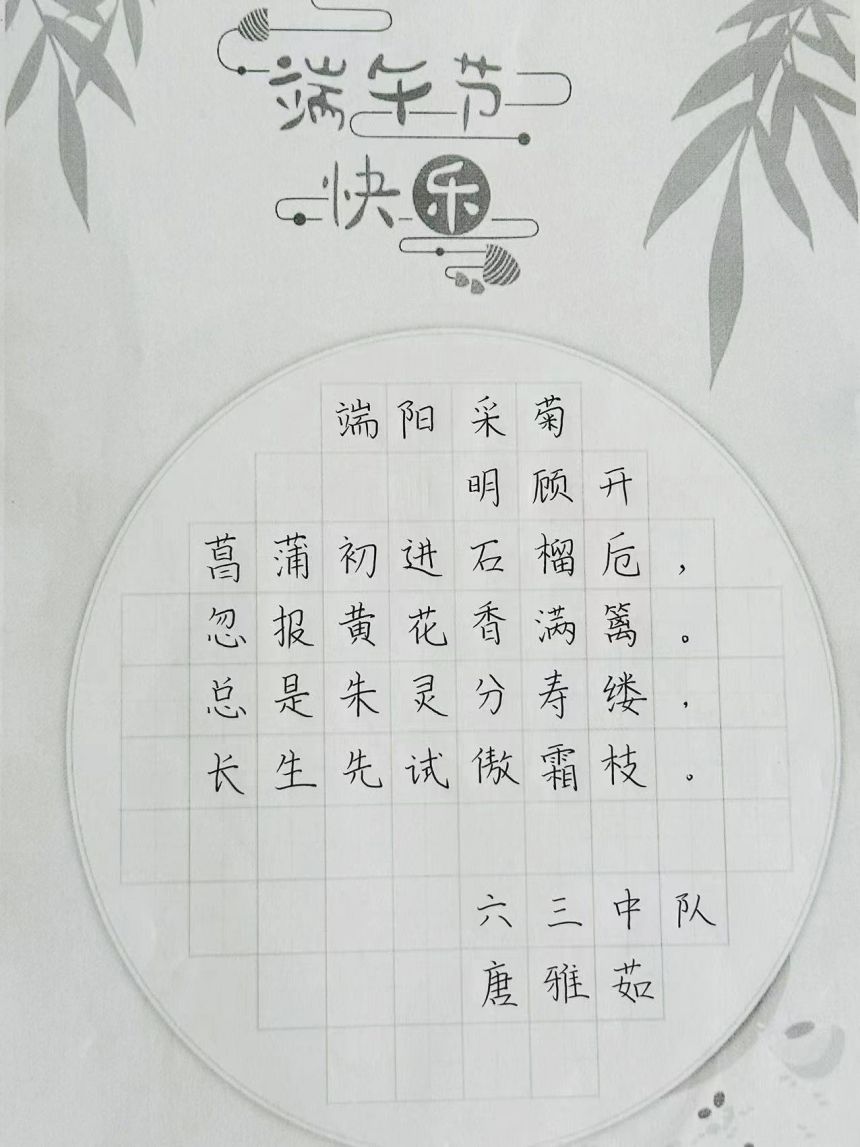 端午节
快乐
端阳采菊
明顾开
菖蒲初进石榴卮，
忽报黄花香满篱。
总是朱灵分寿缕，
长生先试傲霜枝。
六三中队
唐雅茹